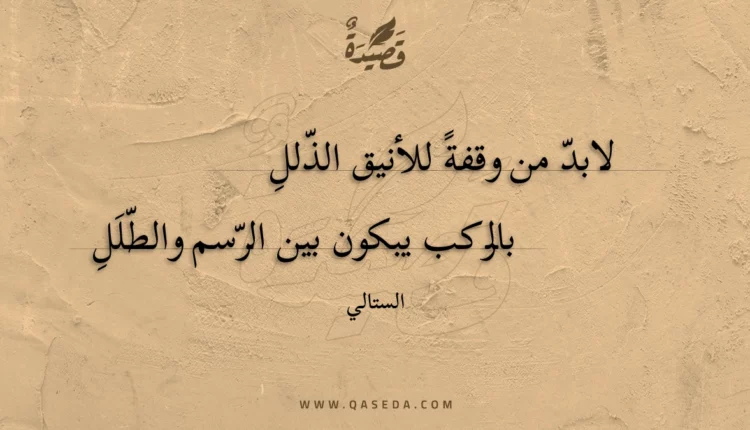 قَصِيْدَةٌ
لابدّ من وقفةً للأنيق الذّللِ
بالركب يبكون بين الرّسم والطّلَلِ
الستالي
WWW.QASEDA.COM